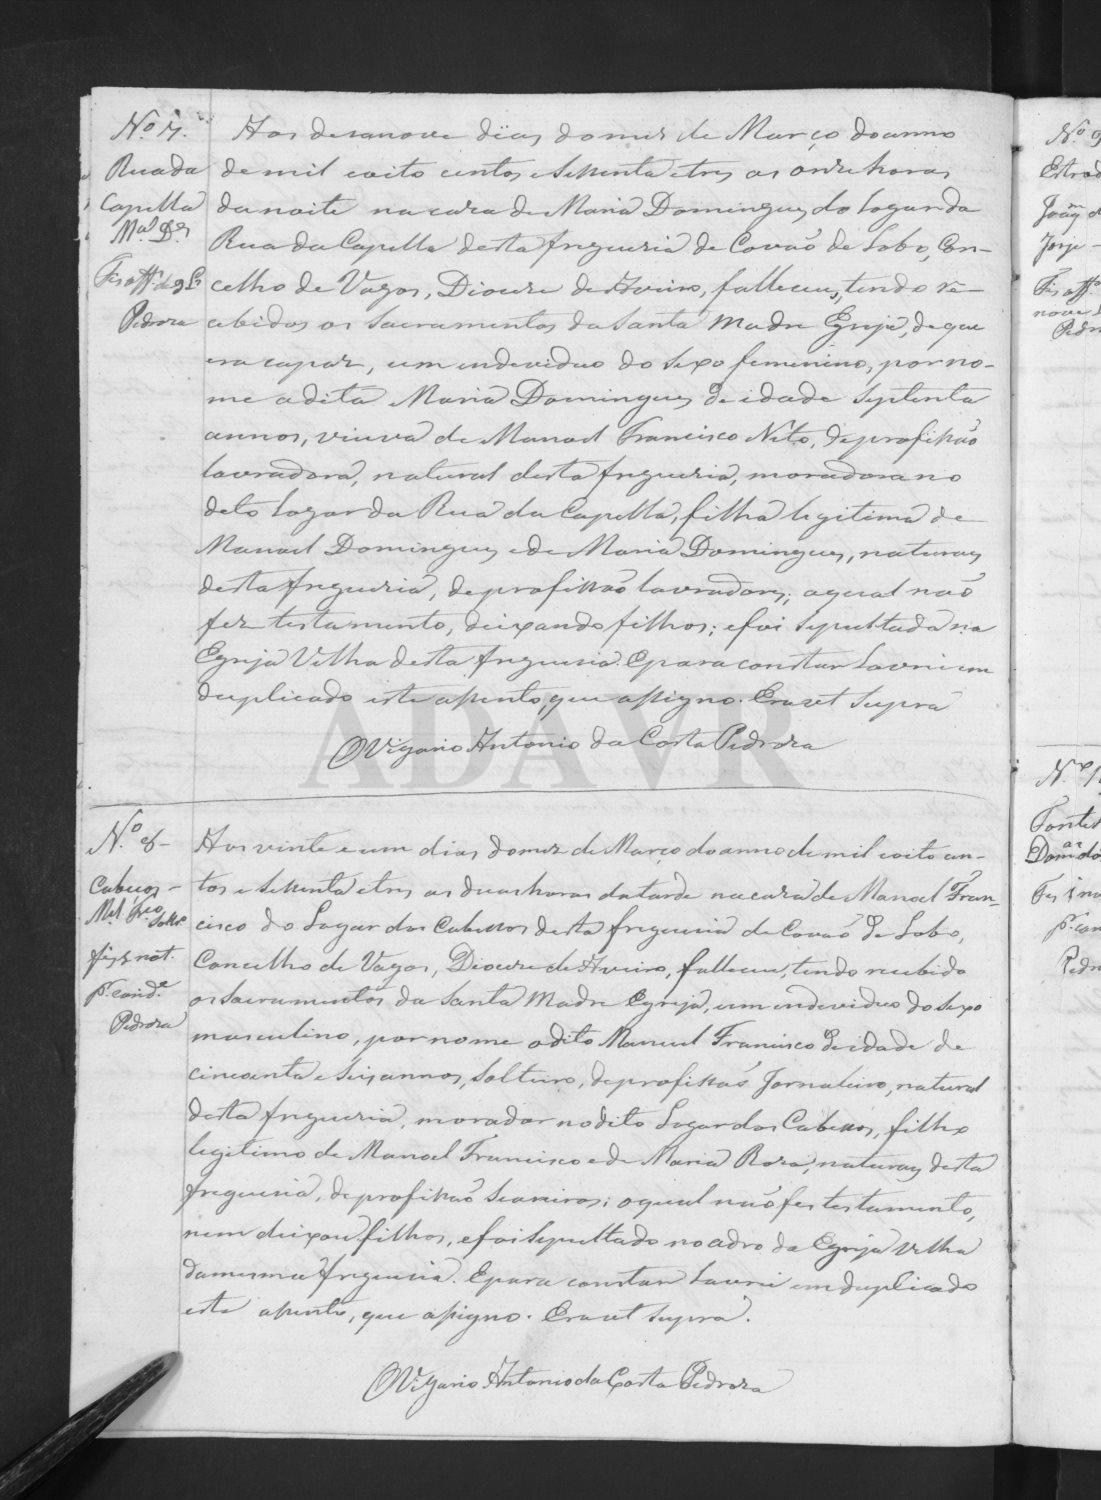 Nº 7.
Rua da
Capella
Mª. D.es
Fes off.º de 9 L.
Pedroza
Aos desanove dias do mez de Março do anno
de mil oito centos e settenta e tres as ónze horas
da noite na caza de Maria Domingues do Logar da
Rua da Capella desta freguezia de Covão de Lobo, Con-
celho de Vagos, Diocese de Aveiro, falleceu, tendo re-
cebidos os Sacramentos da Santa Madre Egreja, de que
era capaz, um individuo do sexo feminino, por no-
me a dita Maria Domingues de idade septenta
annos, viuva de Manoel Francisco Neto, de profissão
lavradora, natural desta freguezia, moradora no
dito Logar da Rua da Capella, filha legitima de
Manoel Domingues e de Maria Domingues, naturaes
desta freguezia, de profissão lavradores; a qual não
fez testamento, deixando filhos; e foi sepultada na
Egreja Velha desta freguezia. E para constar lavrei em
duplicado este assento, que assigno. Era ut supra
O Vigario Antonio da Costa Pedroza
Nº. 8-
Cabeços-
Mel. Fco
Soltrº
fiz not.
p. carid.e
Pedroza
Aos vinte e um dias do mez de Março do anno de mil oito cen-
tos e settenta e tres as duas horas da tarde na caza de Manoel Fran-
cisco do Logar dos Cabessos desta freguezia de Covão de Lobo,
Concelho de Vagos, Diocese de Aveiro, falleceu, tendo recebido
os Sacramentos da Santa Madre Egreja, um individuo do sexo
masculino, por nome o dito Manuel Francisco de idade de
cincoenta e seis annos, solteiro, de profissão Jornaleiro, natural
desta freguezia, morador no dito Logar dos Cabessos, filho
legitimo de Manoel Francisco e de Maria Roza, naturaes desta
freguezia, de profissão Seareiros; o qual não fes testamento,
nem deixou filhos, e foi sepultado no adro da Egreja Velha
da mesma freguezia. E para constar lavrei em duplicado
este assento, que assigno. Era ut supra.
O Vigario Antonio da Costa Pedroza
ADAVR
Nº 9
Estrad
João d
Jorje-
Fes off.º
nove L
Pedr
Nº
Fontes
Dom.os do
Fes
p. cari
Pedr